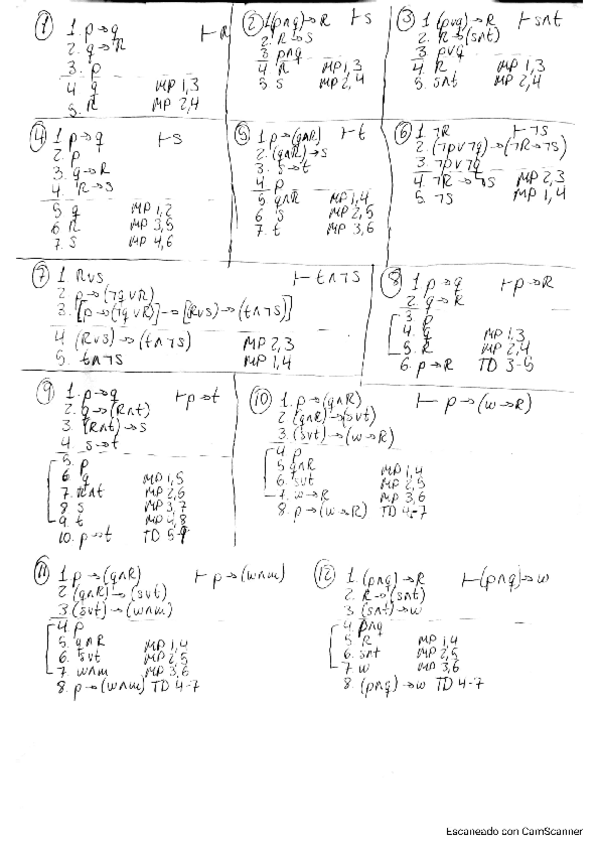 ① 1. p→q ⊢R
2. q→R
3. p
4 q MP 1,3
5. R MP 2,4
② 1 (p∧q)→R ⊢s
2. R→s
3 p∧q
4 R MP 1,3
5 s MP 2,4
③ 1 (p∨q)→R ⊢s∧t
2. R→(s∧t)
3 p∨q
4. R MP 1,3
5. s∧t MP 2,4
④ 1 p→q ⊢s
2. p
3. q→R
4. R→s
5 q MP 1,2
6 R MP 3,5
7. s MP 4,6
⑤ 1 p→(q∧R) ⊢t
2. (q∧R)→s
3. s→t
4 p
5 q∧R MP 1,4
6 s MP 2,5
7 t MP 3,6
⑥ 1. ¬R ⊢¬s
2. (¬p∨¬q)→(¬R→¬s)
3 ¬p∨¬q
4. ¬R→¬s MP 2,3
5. ¬s MP 1,4
⑦ 1 R∨s ⊢t∧¬s
2 p→(¬q∨R)
3. [p→(¬q∨R)]→[(R∨s)→(t∧¬s)]
4. (R∨s)→(t∧¬s) MP 2,3
5. t∧¬s MP 1,4
⑧ 1 p→q ⊢p→R
2. q→R
3. p
4. q MP 1,3
5. R MP 2,4
6. p→R TD 3-5
⑨ 1. p→q ⊢p→t
2. q→(R∧t)
3. (R∧t)→s
4. s→t
5. p
6 q MP 1,5
7. R∧t MP 2,6
8 s MP 3,7
9 t MP 4,8
10. p→t TD 5-9
⑩ 1. p→(q∧R) ⊢p→(w→R)
2 (q∧R)→(s∨t)
3. (s∨t)→(w→R)
4 p
5 q∧R MP 1,4
6. s∨t MP 2,5
7. w→R MP 3,6
8. p→(w→R) TD 4-7
⑪ 1 p→(q∧R) ⊢p→(w∧m)
2 (q∧R)→(s∨t)
3 (s∨t)→(w∧m)
4 p
5. q∧R MP 1,4
6. s∨t MP 2,5
7. w∧m MP 3,6
8. p→(w∧m) TD 4-7
⑫ 1. (p∧q)→R ⊢(p∧q)→w
2. R→(s∧t)
3. (s∧t)→w
4 p∧q
5 R MP 1,4
6. s∧t MP 2,5
7 w MP 3,6
8. (p∧q)→w TD 4-7
Escaneado con CamScanner